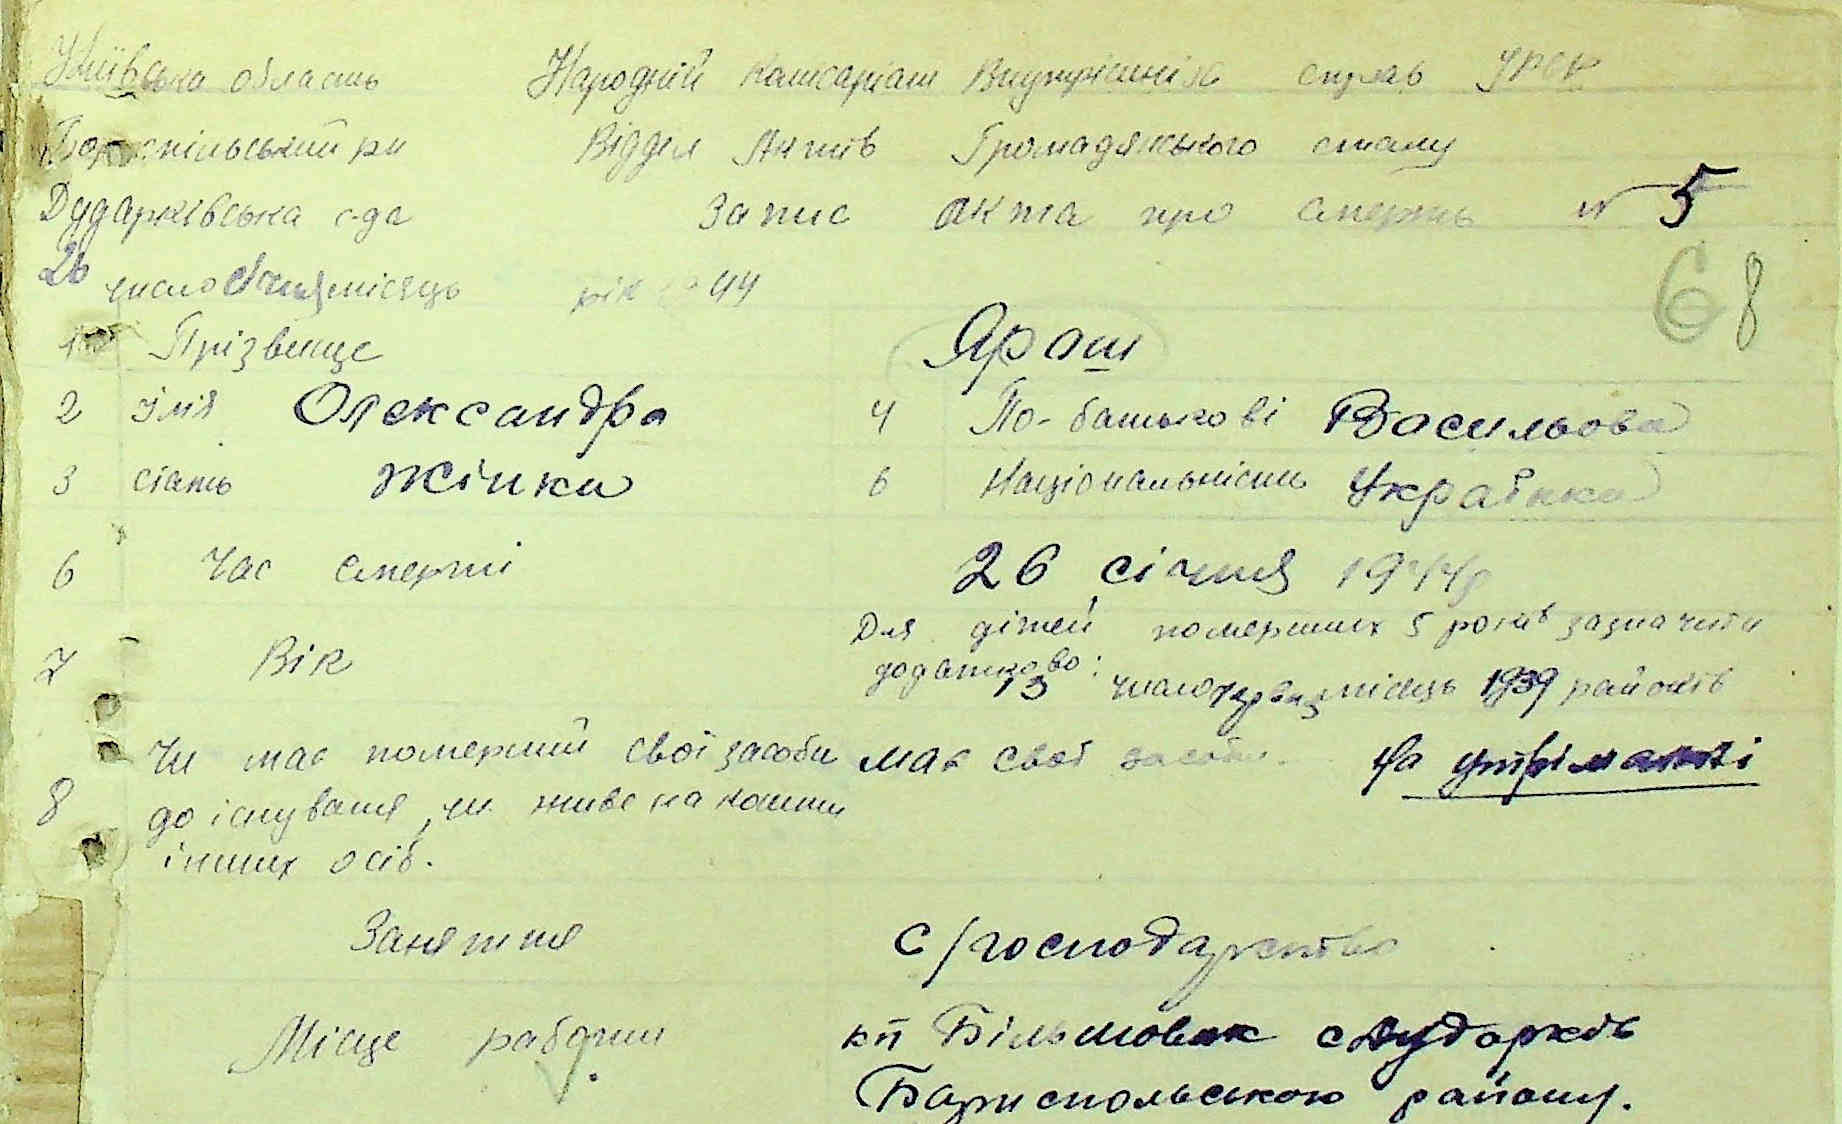 Київська область Народній Комісаріат Внутрішніх справ УРСР
Бориспільський рн Відділ Актів Громадянського стану
Дударківська с-да Запис акта про смерть № 5
26 число Січня місяць рік 1944
68
1 Прізвище Ярош
2 імя Олександра 4 По-батькові Васильова
3 стать жінка 6 Національність Українка
6 Час смерті 26 січня 1944р
7 Вік Для дітей померших 5 років зазначити
додатково: 13 число червня місяць 1939
8 Чи має померший свої засоби має свої засоби. На утріманні
до існування, чи живе на кошти
інших осіб.
Заняття с/господарство
Місце работи кп Більшовик с Дударків
Бариспольського району.